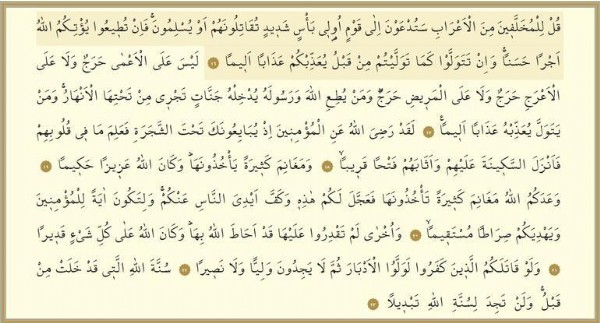 قُلْ لِلْمُخَلَّفٖينَ مِنَ الْاَعْرَابِ سَتُدْعَوْنَ اِلٰى قَوْمٍ اُو۬لٖى بَأْسٍ شَدٖيدٍ تُقَاتِلُونَهُمْ اَوْ يُسْلِمُونَۚ فَاِنْ تُطٖيعُوا يُؤْتِكُمُ اللّٰهُ
اَجْرًا حَسَنًاۚ وَاِنْ تَتَوَلَّوْا كَمَا تَوَلَّيْتُمْ مِنْ قَبْلُ يُعَذِّبْكُمْ عَذَابًا اَلٖيمًا ﴿١٦﴾ لَيْسَ عَلَى الْاَعْمٰى حَرَجٌ وَلَا عَلَى
الْاَعْرَجِ حَرَجٌ وَلَا عَلَى الْمَرٖيضِ حَرَجٌۜ وَمَنْ يُطِعِ اللّٰهَ وَرَسُولَهُ يُدْخِلْهُ جَنَّاتٍ تَجْرٖى مِنْ تَحْتِهَا الْاَنْهَارُۚ وَمَنْ
يَتَوَلَّ يُعَذِّبْهُ عَذَابًا اَلٖيمًاۚ ﴿١٧﴾ لَقَدْ رَضِىَ اللّٰهُ عَنِ الْمُؤْمِنٖينَ اِذْ يُبَايِعُونَكَ تَحْتَ الشَّجَرَةِ فَعَلِمَ مَا فٖى قُلُوبِهِمْ
فَاَنْزَلَ السَّكٖينَةَ عَلَيْهِمْ وَاَثَابَهُمْ فَتْحًا قَرٖيبًاۙ ﴿١٨﴾ وَمَغَانِمَ كَثٖيرَةً يَأْخُذُونَهَاۜ وَكَانَ اللّٰهُ عَزٖيزًا حَكٖيمًا ﴿١٩﴾
وَعَدَكُمُ اللّٰهُ مَغَانِمَ كَثٖيرَةً تَأْخُذُونَهَا فَعَجَّلَ لَكُمْ هٰذِهٖ وَكَفَّ اَيْدِىَ النَّاسِ عَنْكُمْۚ وَلِتَكُونَ اٰيَةً لِلْمُؤْمِنٖينَ
وَيَهْدِيَكُمْ صِرَاطًا مُسْتَقٖيمًاۙ ﴿٢٠﴾ وَاُخْرٰى لَمْ تَقْدِرُوا عَلَيْهَا قَدْ اَحَاطَ اللّٰهُ بِهَاۜ وَكَانَ اللّٰهُ عَلٰى كُلِّ شَیْءٍ قَدٖيرًا
﴿٢١﴾ وَلَوْ قَاتَلَكُمُ الَّذٖينَ كَفَرُوا لَوَلَّوُا الْاَدْبَارَ ثُمَّ لَا يَجِدُونَ وَلِيًّا وَلَا نَصٖيرًا ﴿٢٢﴾ سُنَّةَ اللّٰهِ الَّتٖى قَدْ خَلَتْ مِنْ
قَبْلُۚ وَلَنْ تَجِدَ لِسُنَّةِ اللّٰهِ تَبْدٖيلًا ﴿٢٣﴾